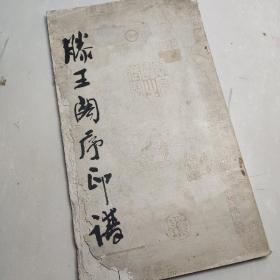 滕王阁序印谱